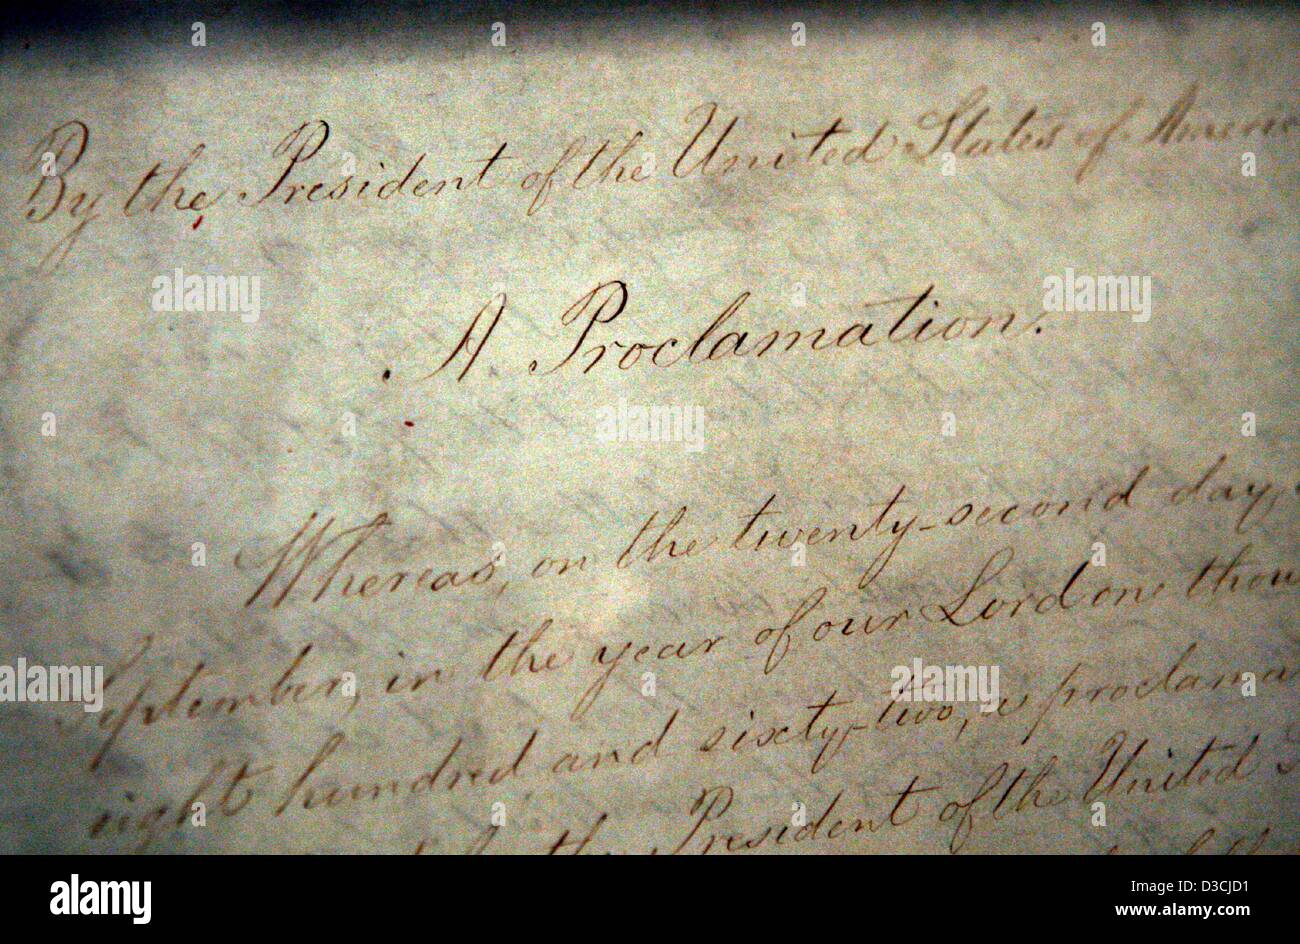 By the President of the United States of America
A Proclamation.
Whereas, on the twenty-second day,
September, in the year of our Lord one thou
eight hundred and sixty-two, a proclama
the President of the United S
alamy
Image ID: D3CJD1
www.alamy.com